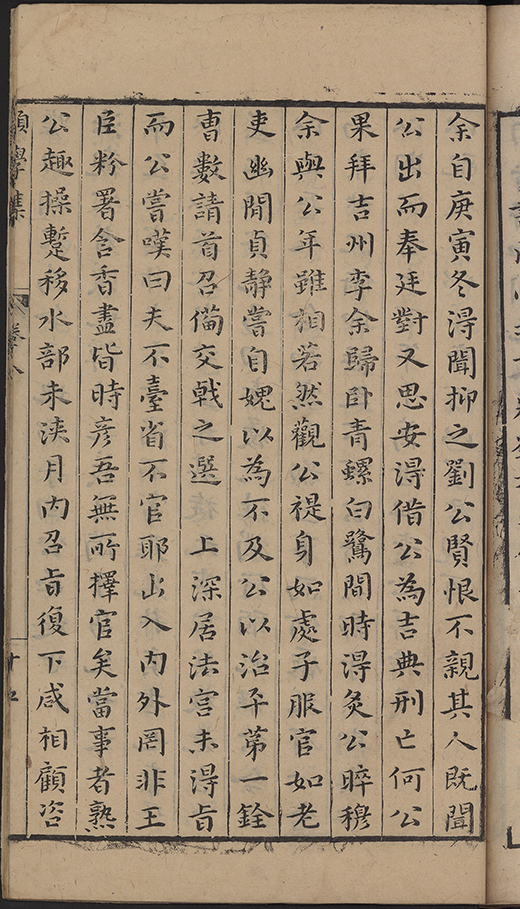 余自庚寅冬得聞抑之劉公賢恨不親其人既聞
公出而奉廷對又思安得借公為吉典刑亡何公
果拜吉州李余歸卧青螺白鷺間時得炙公晬穆
余與公年雖相若然觀公禔身如處子服官如老
吏幽閒貞靜嘗自媿以為不及公以治平第一銓
曹數請首召僃交戟之選　上深居法宮未得旨
而公嘗嘆曰夫不臺省不官耶出入內外罔非王
臣粉署含香盡皆時彥吾無所擇官矣當事者熟
公趣操蹔移水部未浹月內召旨復下咸相顧咨
學集
卷八